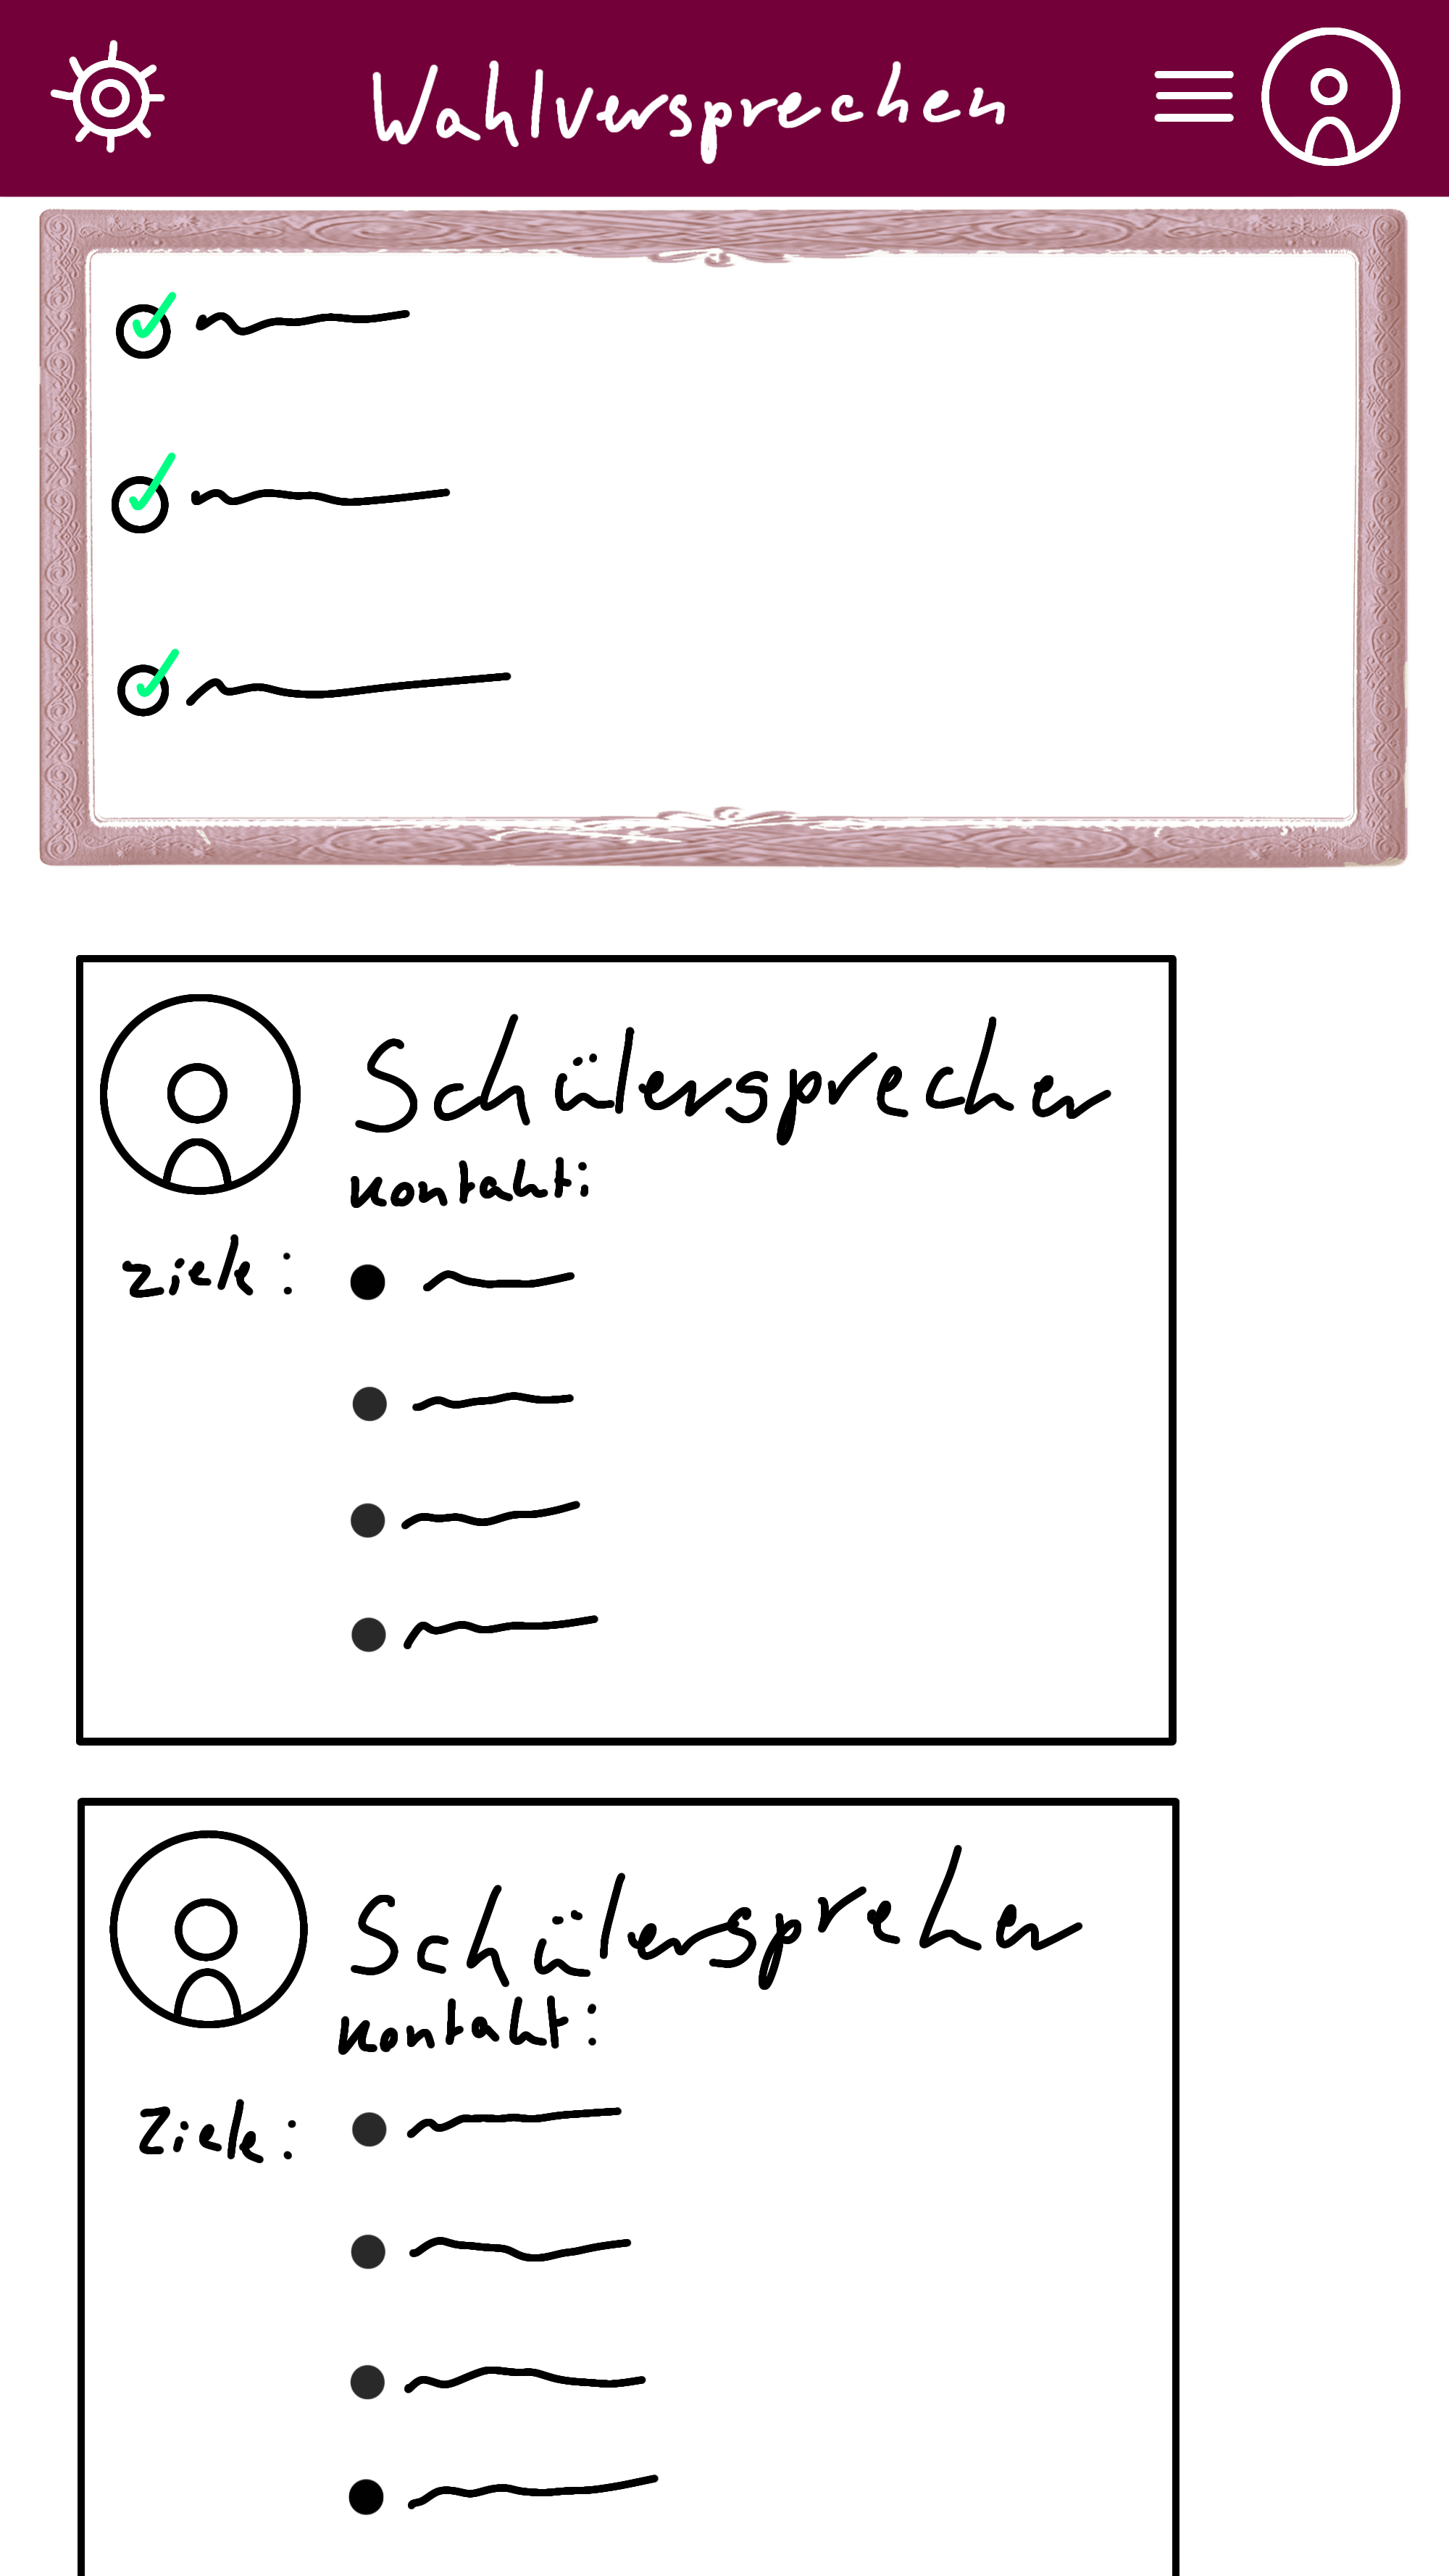 Wahlversprechen
Schülersprecher
Kontakt:
Ziele:
Schülerspreher
Kontakt:
Ziele: